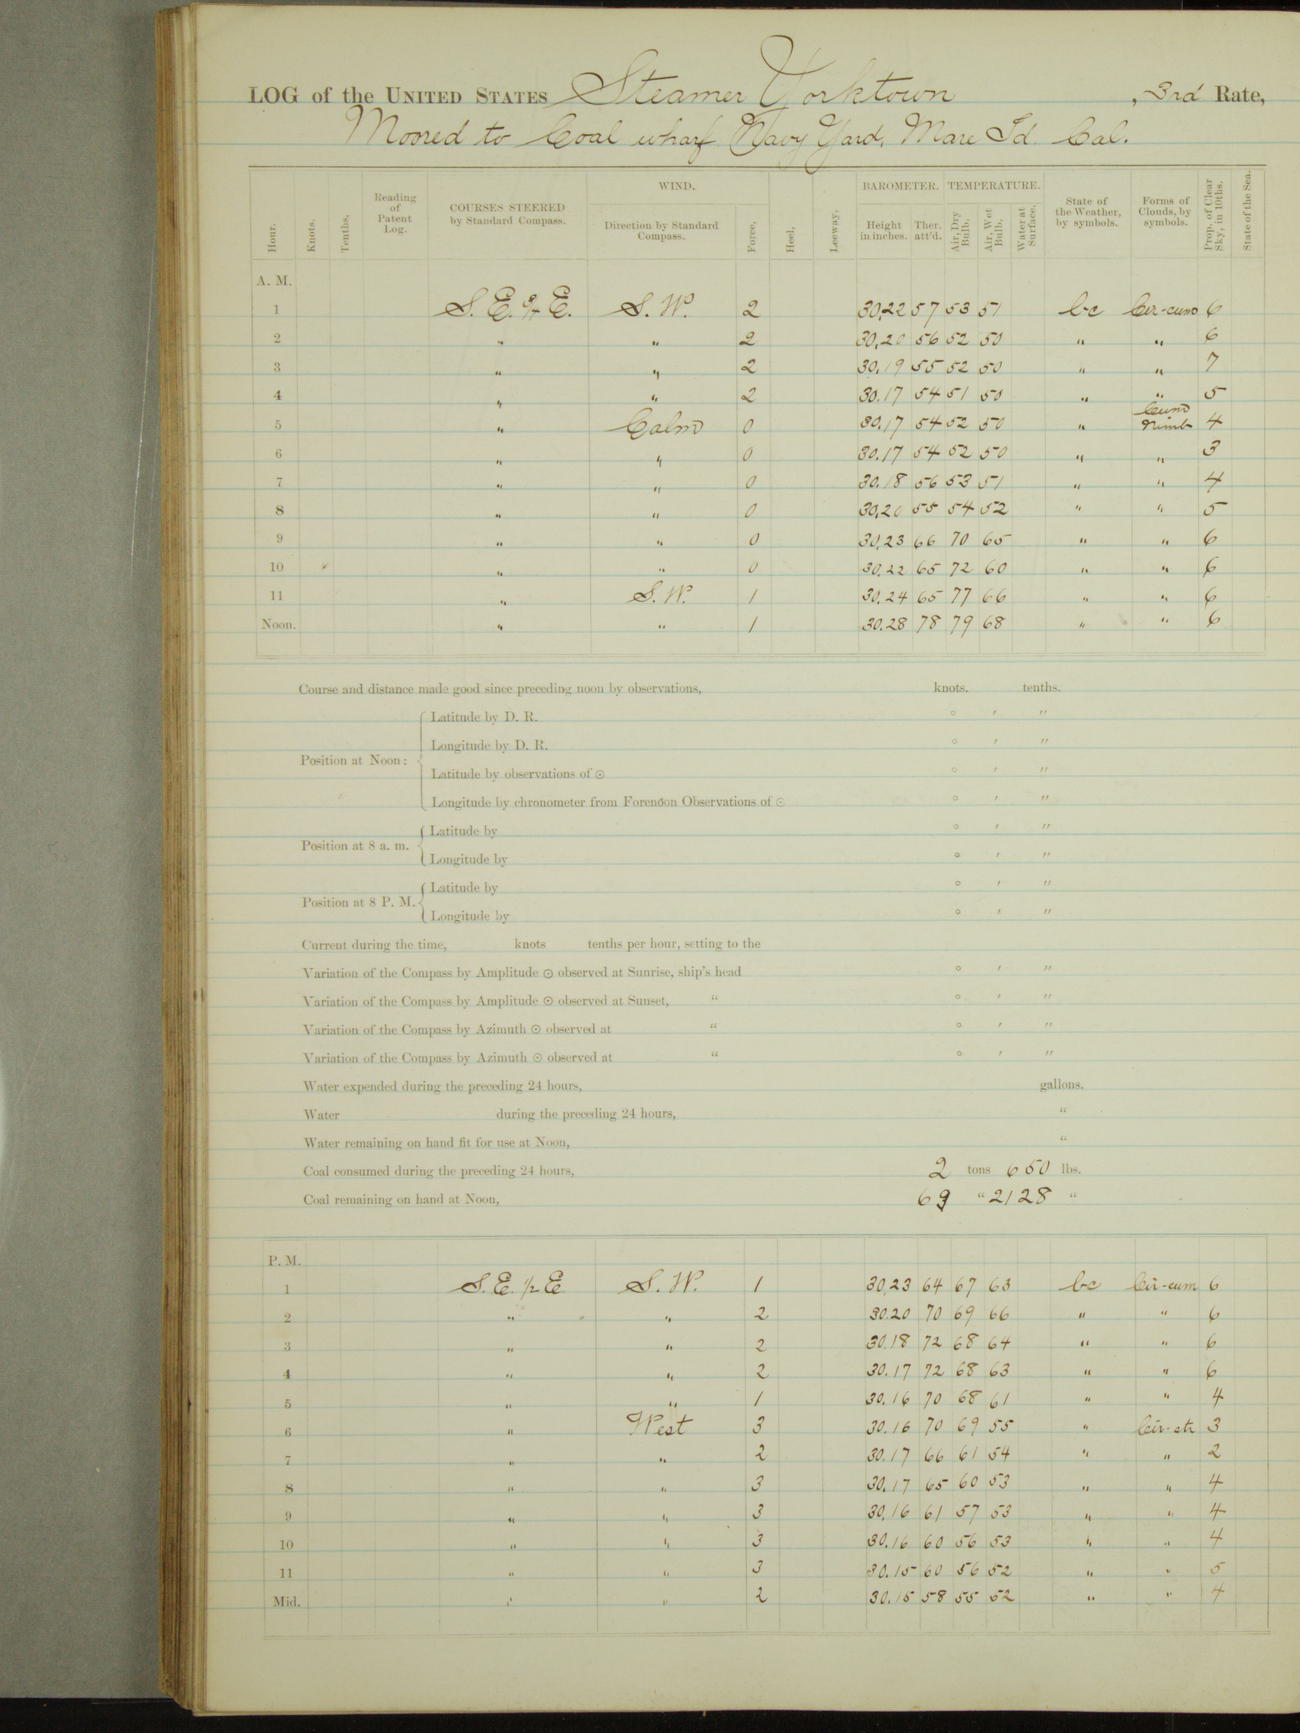 LOG of the UNITED STATES Steamer Yorktown , 3rd Rate,
Moored to Coal wharf Navy Yard, Mare Id. Cal.
Hour. Knots. Tenths. Reading of Patent Log. COURSES STEERED by Standard Compass. WIND. Direction by Standard Compass. Force. Heel. Leeway. BAROMETER. Height in inches. Ther. att'd. TEMPERATURE. Air, Dry Bulb. Air, Wet Bulb. Water at Surface. State of the Weather, by symbols. Forms of Clouds, by symbols. Prop. of Clear Sky, in 10ths. State of the Sea.
A. M.
1 S. E. E. S. W. 2 30.22 57 53 51 bc Cir-cum 6
2 " " 2 30.20 56 52 50 " " 6
3 " " 2 30.19 55 52 50 " " 7
4 " " 2 30.17 54 51 50 " " 5
5 " Calm 0 30.17 54 52 50 " Cum Nimb 4
6 " " 0 30.17 54 52 50 " " 3
7 " " 0 30.18 56 53 51 " " 4
8 " " 0 30.20 55 54 52 " " 5
9 " " 0 30.23 66 70 65 " " 6
10 " " 0 30.22 65 72 60 " " 6
11 " S. W. 1 30.24 65 77 66 " " 6
Noon. " " 1 30.28 78 79 68 " " 6
Course and distance made good since preceding noon by observations, knots. tenths.
Position at Noon:
Latitude by D. R. ° ' "
Longitude by D. R. ° ' "
Latitude by observations of ☉ ° ' "
Longitude by chronometer from Forenoon Observations of ☉ ° ' "
Position at 8 a. m.
Latitude by ° ' "
Longitude by ° ' "
Position at 8 P. M.
Latitude by ° ' "
Longitude by ° ' "
Current during the time, knots tenths per hour, setting to the
Variation of the Compass by Amplitude ☉ observed at Sunrise, ship's head ° ' "
Variation of the Compass by Amplitude ☉ observed at Sunset, " ° ' "
Variation of the Compass by Azimuth ☉ observed at " ° ' "
Variation of the Compass by Azimuth ☉ observed at " ° ' "
Water expended during the preceding 24 hours, gallons.
Water during the preceding 24 hours, "
Water remaining on hand fit for use at Noon, "
Coal consumed during the preceding 24 hours, 2 tons 650 lbs.
Coal remaining on hand at Noon, 69 " 2128 "
P. M.
1 S. E. 1/2 E S. W. 1 30.23 64 67 63 bc Cir-cum 6
2 " " 2 30.20 70 69 66 " " 6
3 " " 2 30.18 72 68 64 " " 6
4 " " 2 30.17 72 68 63 " " 6
5 " " 1 30.16 70 68 61 " " 4
6 " West 3 30.16 70 69 55 " Cir-str 3
7 " " 2 30.17 66 61 54 " " 2
8 " " 3 30.17 65 60 53 " " 4
9 " " 3 30.16 61 57 53 " " 4
10 " " 3 30.16 60 56 53 " " 4
11 " " 3 30.15 60 56 52 " " 5
Mid. " " 2 30.15 58 55 52 " " 4